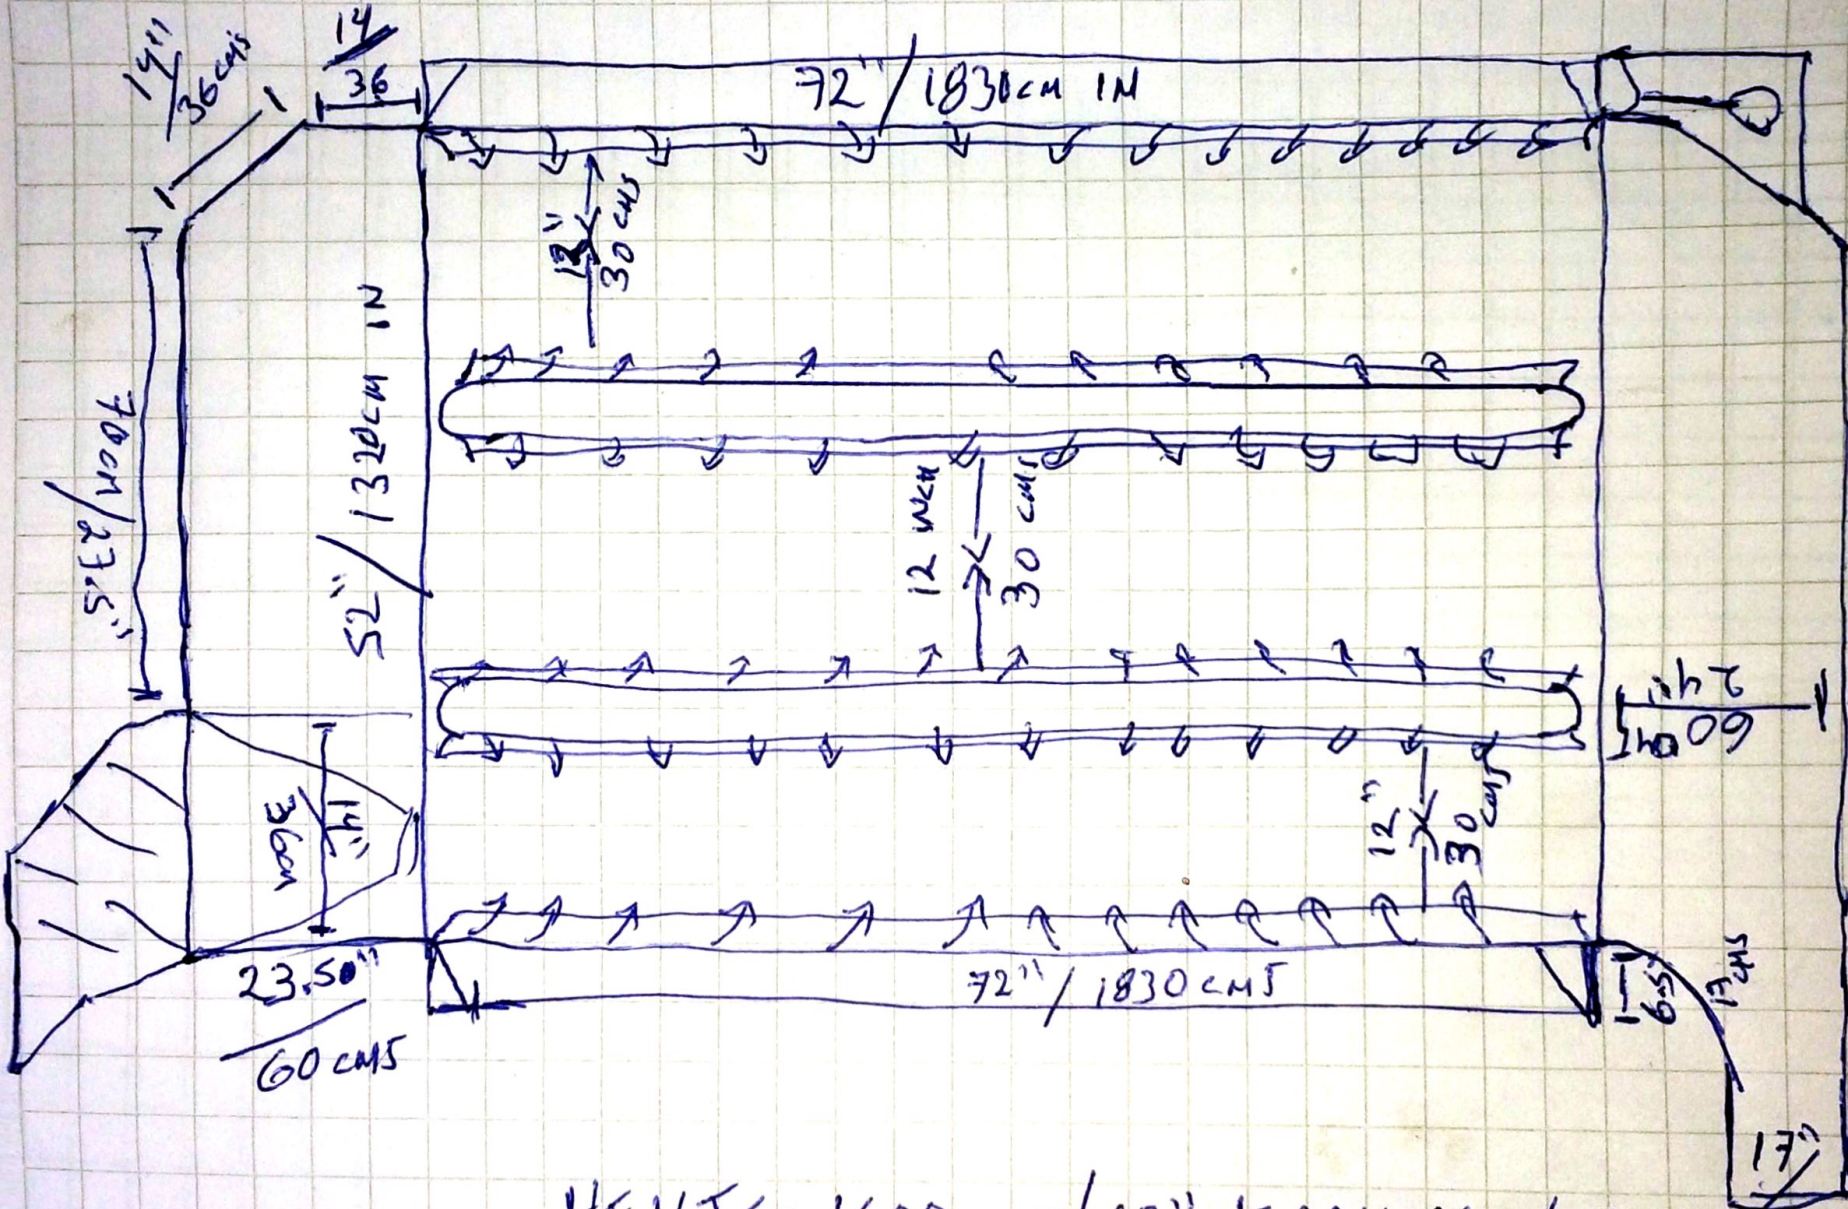 14"/36cms
14/36
72"/1830cm IN
12"
30 cms
52"/1320cm IN
70cm/27.5"
12 inch
30 cms
24"
60cms
14"/36cm
12"
30 cms
23.50"/60 cms
72"/1830 cms
6.5"
17 cms
17"